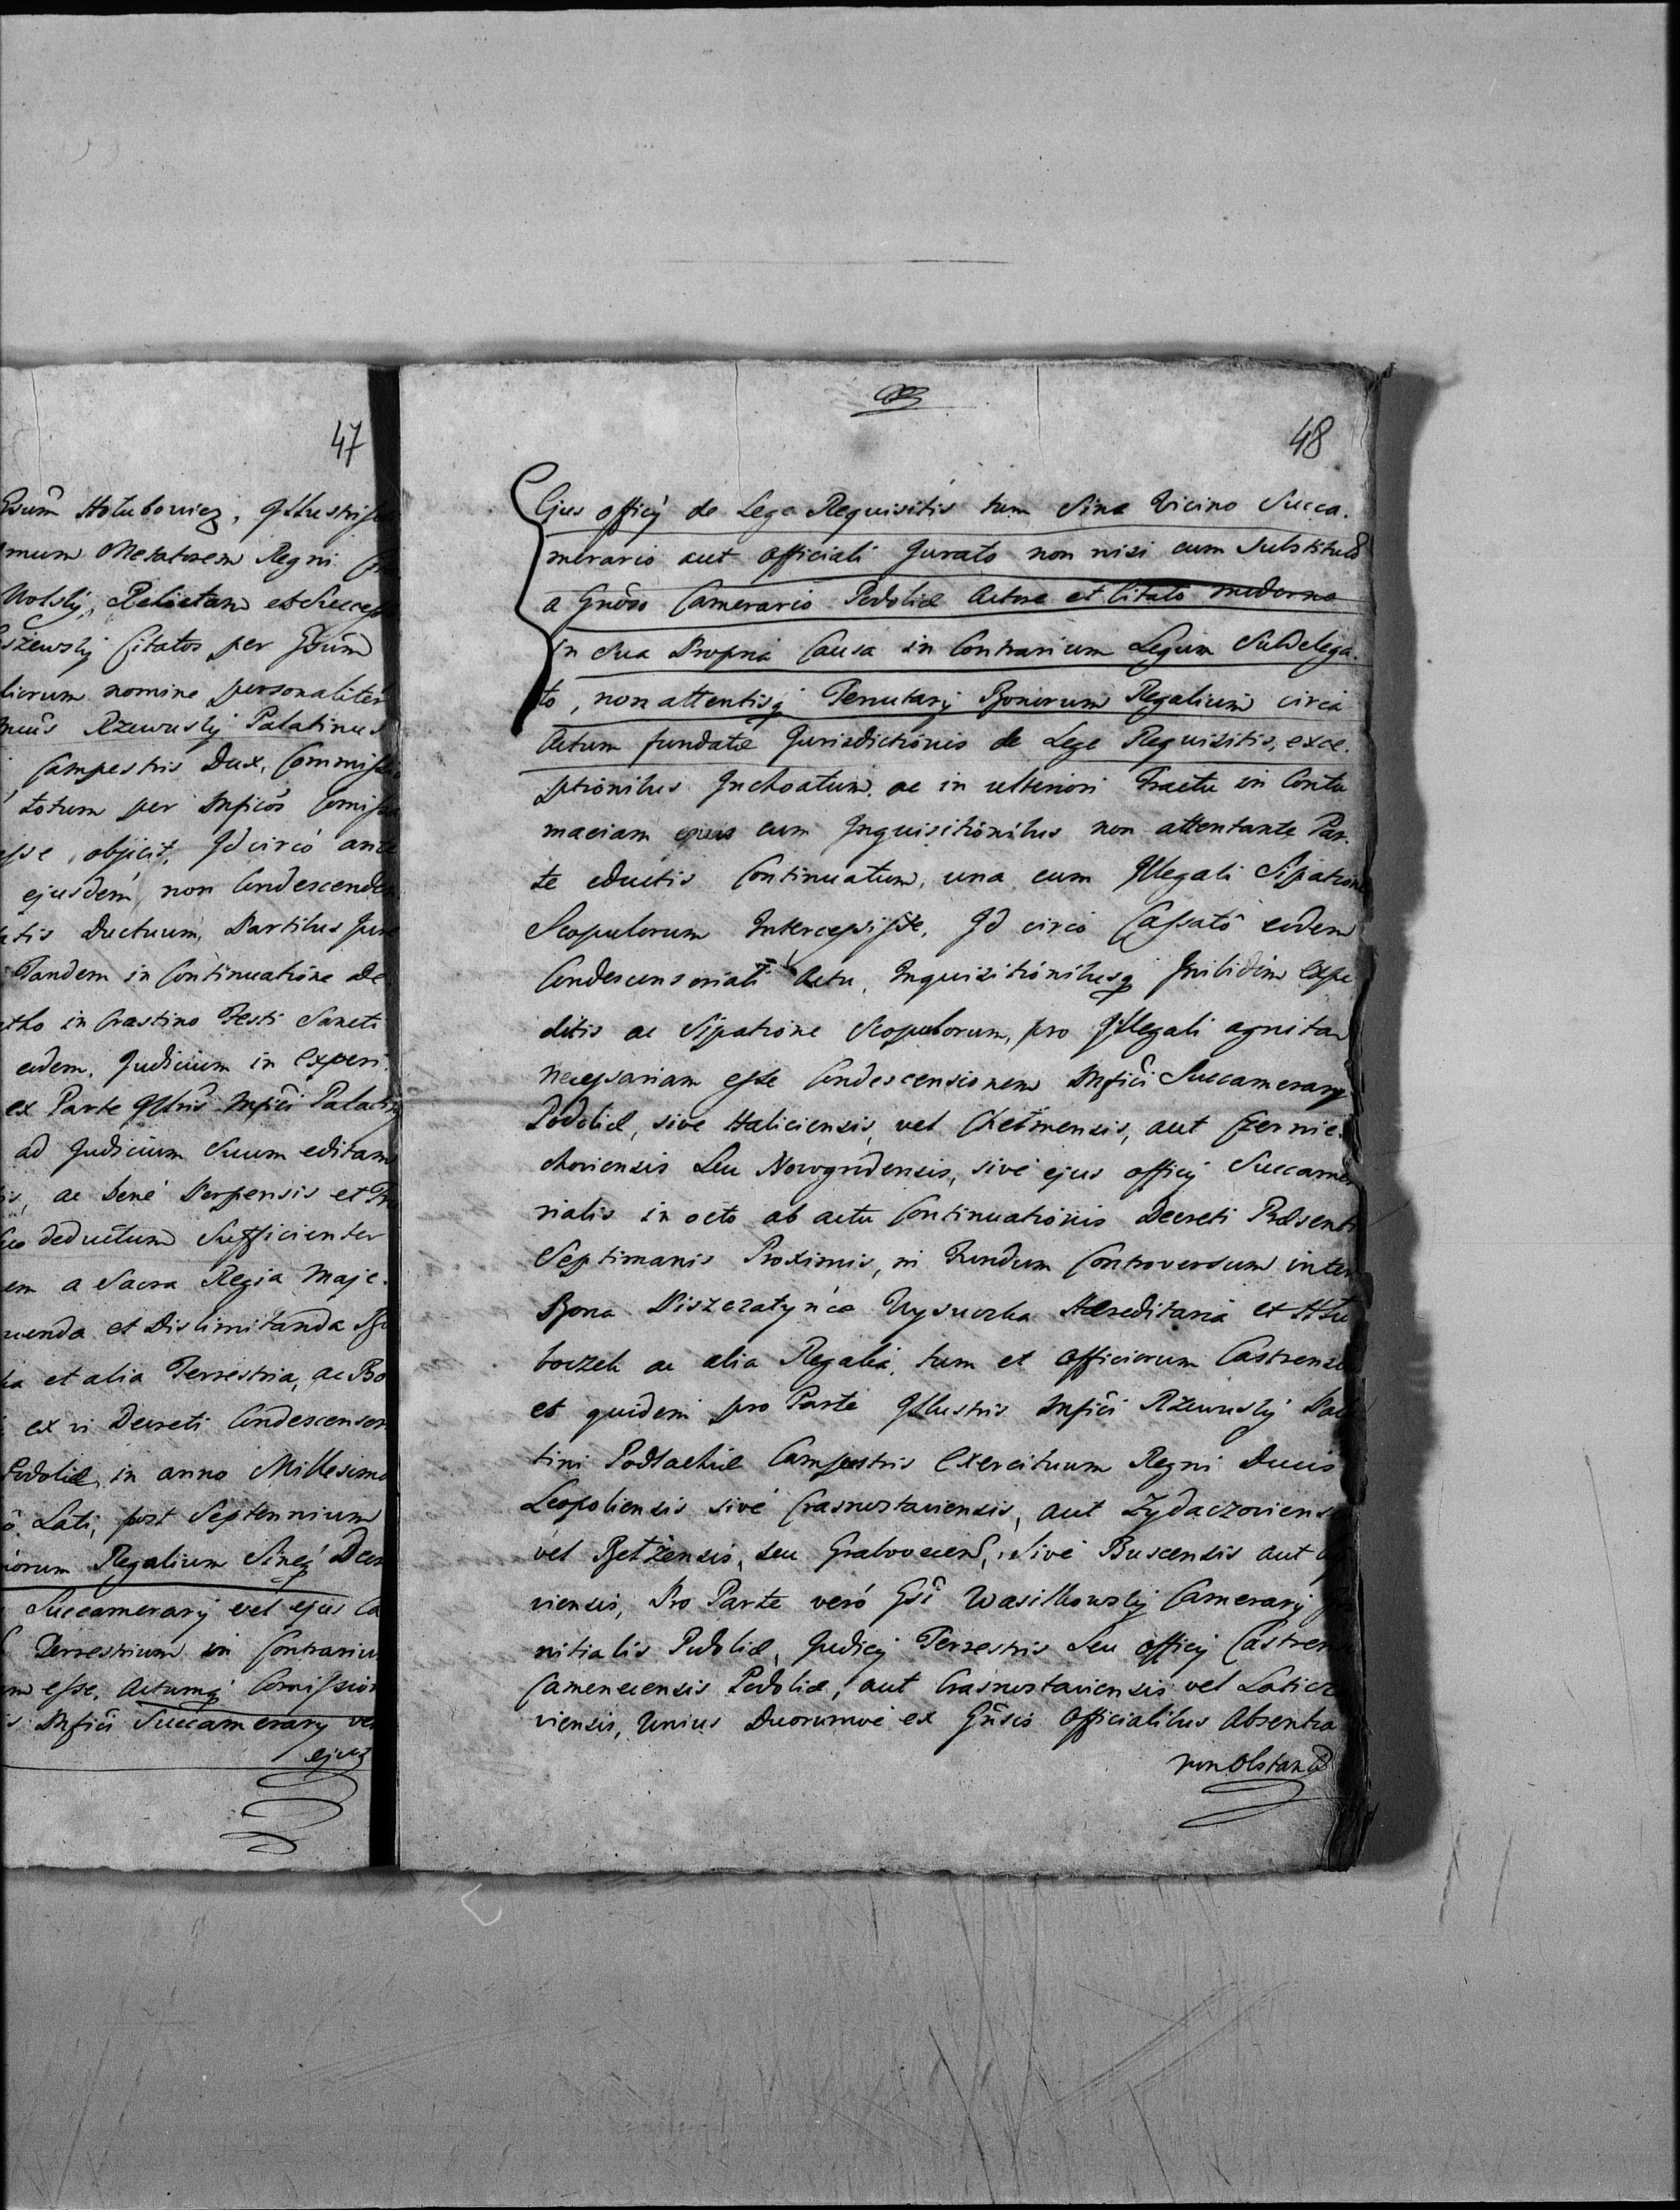 47
Gsum Hołubowicz, Illustriss
mum Metatorem Regni
Wolskij, Relictam et Success
szewskij Citatos per Gsum
liorum nomine personaliter
Rzewuskij Palatinus
Campestris Dux, Commiss
totum per Mficos Comiss
esse objicit, Id circo ante
ejusdem non Condescenden
Ductuum, Partibus Jure
Tandem in Continuatione De
in Crastino Festi Sancti
eodem Judicium in Experi
ex Parte Illris Mfici Palatin
ad Judicium Suum editam
ac bene Perpensis et
deductum Sufficienter
em a Sacra Regia Maje.
uenda et Dislimitanda
et alia Terrestria, ac Bo
ex vi Decreti Condescensor
Podoliæ in anno Millesimo
Lati, post Septennium
norum Regalium Sineq
Succamerarij vel ejus Ca
Terrestrium in Contrarium
esse, Actumq Comission
Mfici Succamerarij vel
ejus
48
Ejus officij de Lege Requisitis tum Sine Vicino Succa.
merario aut Officiali Jurato non nisi cum Substituto
a Gnoso Camerario Podoliæ Actore et Citato moderno
in Sua Propria Causa in Contrarium Legum Subdelega.
to, non attentisq Tenutarij Bonorum Regalium circa
Actum fundatæ Jurisdictionis de Lege Requisitis, exce.
ptionibus Inchoatum ac in ulteriori Tractu in Contu
maciam cum Inquisitionibus non attentante Par.
te eductis Continuatum, una cum Illegali Sipatione
Scopulorum Intercepisse, Id circo Cassato eodem
Condescensoriali Actu, Inquisitionibusq Inibidem Expe
ditis ac Sipatione Scopulorum, pro Illegali agnita
necessariam esse Condescensionem Mfici Succamerarij
Podoliæ, sive Haliciensis, vel Chelmensis, aut Czernie.
choviensis Seu Nowogrodensis, sive ejus officij Succamer
rialis in octo ab actu Continuationis Decreti Præsenti
Septimanis Proximis, in Fundum Controversum inter
Bona Piszczatynce Wysuczka Hæreditaria et Hłu
boczek ac alia Regalia, tum et officiorum Castrensi
et quidem pro Parte Illustris Mfici Rzewuskij Pala
tini Podlachiæ Campestris Exercituum Regni Ducis
Leopoliensis sive Crasnostaviensis, aut Zydaczoviens
vel Betzensis, seu Grabovecens, Sive Buscensis aut
viensis, Pro Parte vero Gsi Wasilkowskij Camerarij
nitialis Podoliæ, Judicij Terrestris Seu officij Castren
Camenecensis Podoliæ, aut Crasnostaviensis vel Laticz
viensis, Unius Duorumve ex Gnsis Officialibus Absentia
non Obstante